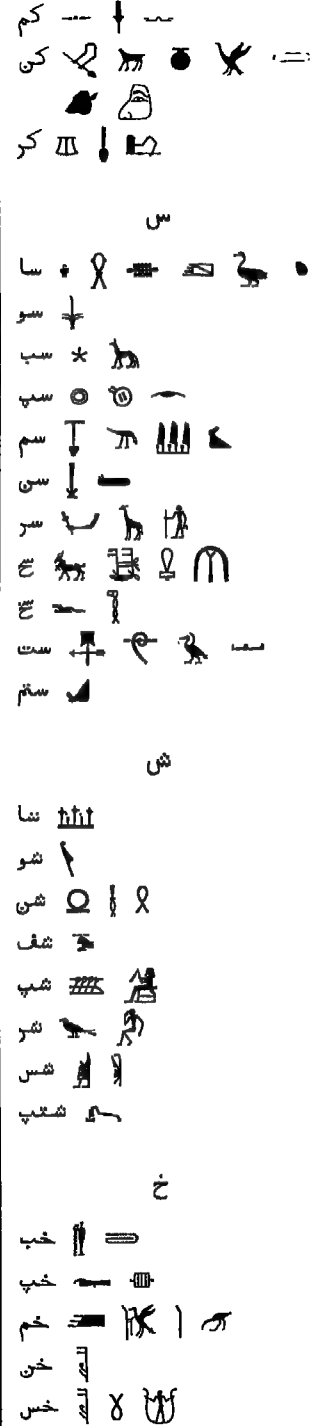 كم
كن
كر
س
سا
سو
سب
سپ
سم
سن
سر
سح
سخ
ست
ستم
ش
شا
شو
شن
شف
شپ
شر
شس
شتپ
خ
خب
خپ
خم
خن
خس